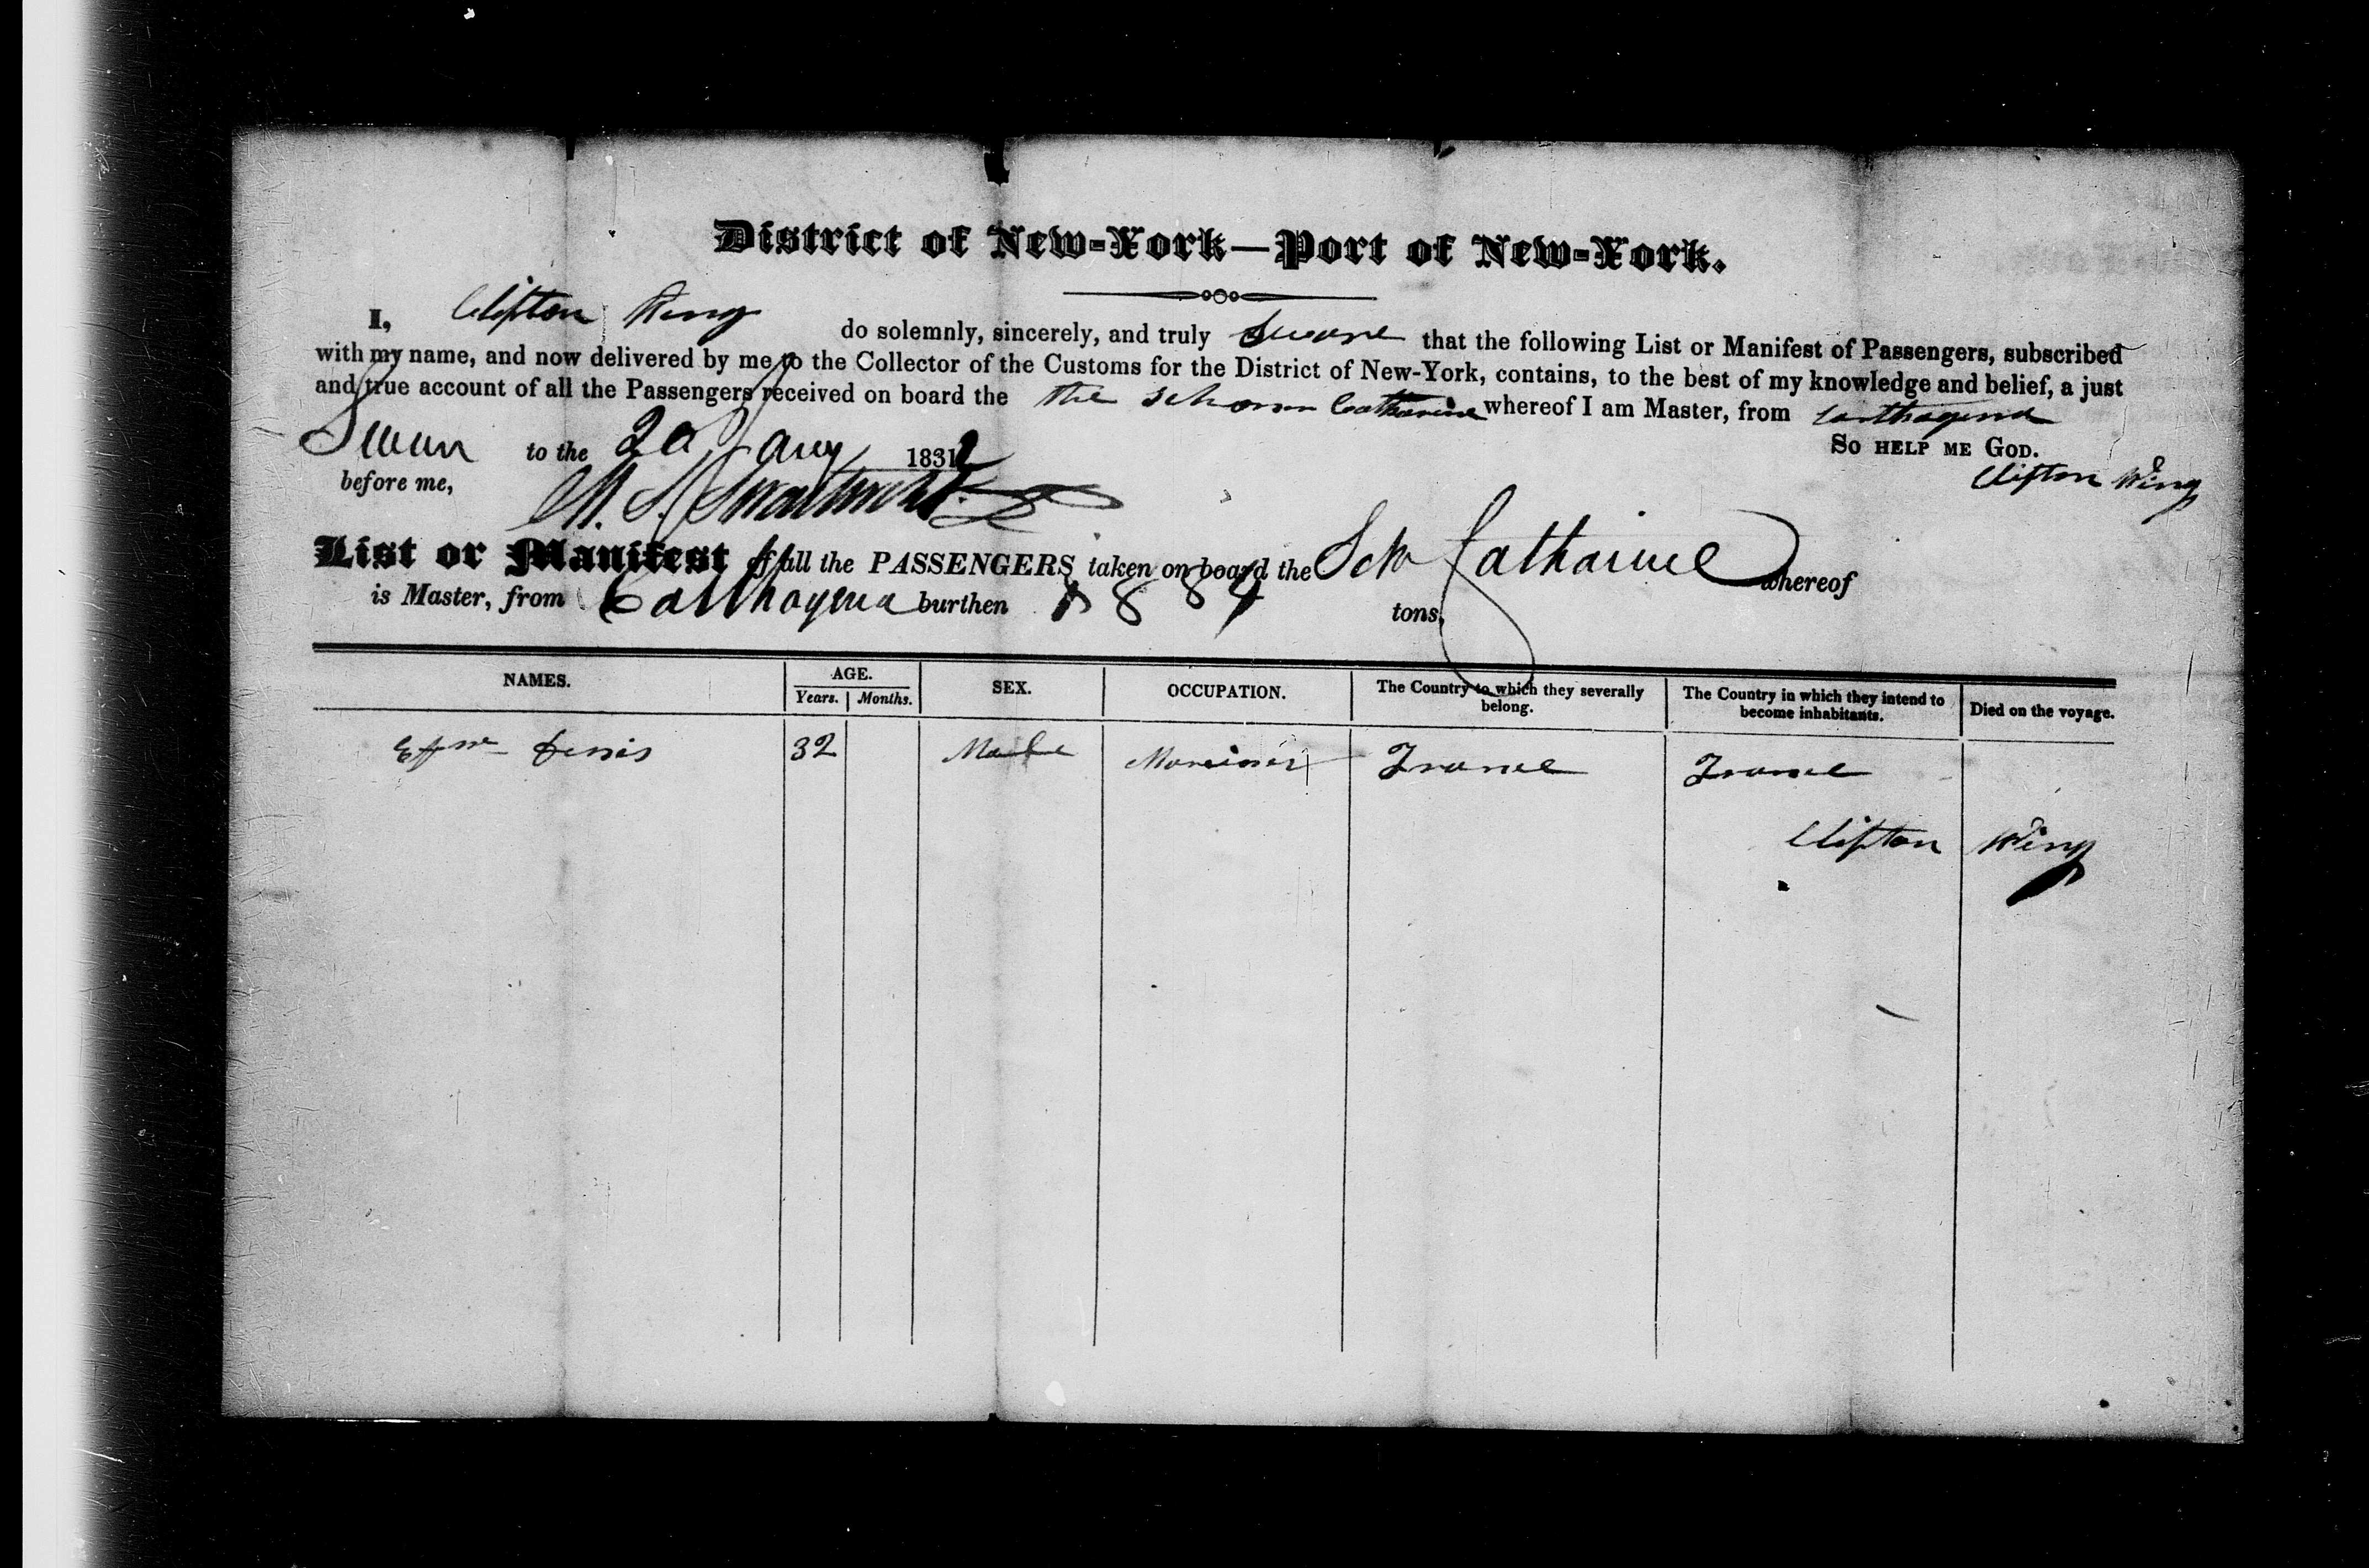 District of New-York—Port of New-York.
I, Clifton Wing do solemnly, sincerely, and truly Sweare that the following List or Manifest of Passengers, subscribed
with my name, and now delivered by me to the Collector of the Customs for the District of New-York, contains, to the best of my knowledge and belief, a just
and true account of all the Passengers received on board the the Catharine whereof I am Master, from Carthagena
Sworn to the 20 Jany 1832 So HELP ME GOD.
before me, Clifton Wing
List or Manifest of all the PASSENGERS taken on board the Schr Catharine whereof
is Master, from Carthagena burthen 88 84 tons,
NAMES. AGE. SEX. OCCUPATION. The Country to which they severally belong. The Country in which they intend to become inhabitants. Died on the voyage.
Years. Months.
32 Male France France
Clifton Wing